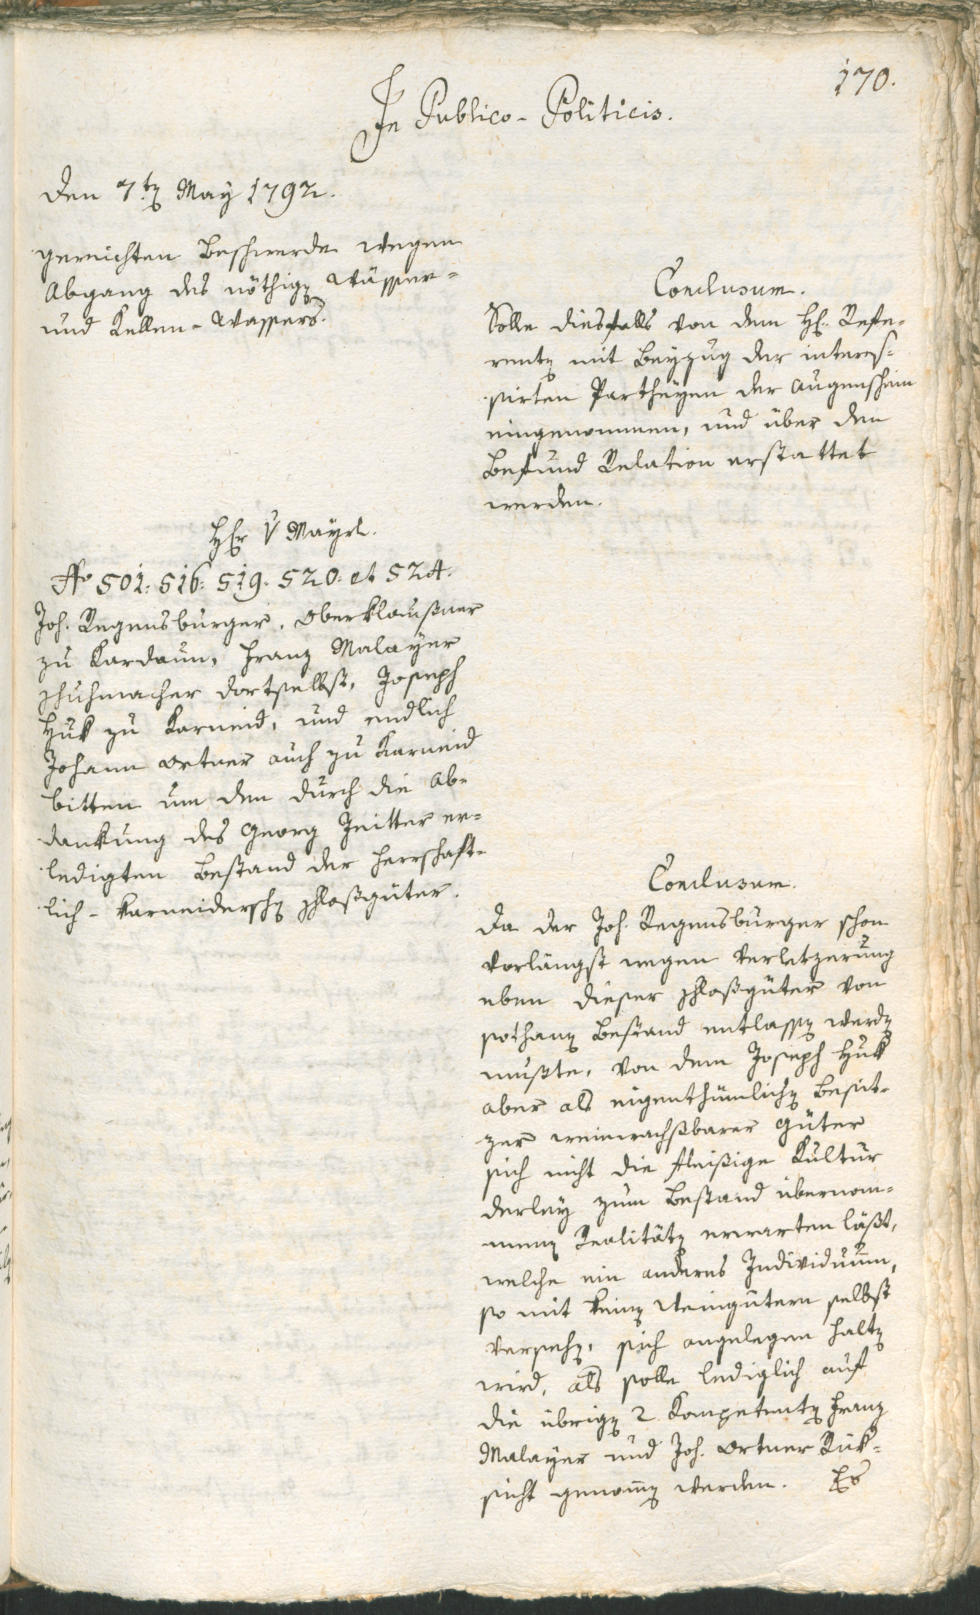 170.
In Publico-Politicis.
Den 7ten May 1792.
gereichten Beschwerde wegen
Abgang des nöthigen Wässer-
und Kellen-Wassers.
Conclusum.
Solle diesfalls von dem H. Refe-
renten mit Beyzug der interes-
sirten Partheyen der Augenschein
eingenommen, und über den
Befund Relation erstattet
werden.
Hr v Mayrl.
No 501. 516. 519. 520. et 524.
Joh. Regensburger, Oberklaußner
zu Kardaun, Franz Malayer
Schuhmacher dortselbst, Joseph
Huk zu Karneid, und endlich
Johann Ortner auch zu Karneid
bitten um den durch die Ab-
dankung des Georg er-
ledigten Bestand der Herrschaft-
lich-karneiderschen Schloßgüter.
Conclusum.
Da der Joh. Regensburger schon
vorlängst wegen
eben dieser Schloßgüter von
sothanen Bestand entlassen werden
mußte, von dem Joseph Huk
aber als eigenthümlichen Besit-
zer weinwachsbarer Güter
sich nicht die fleißige Kultur
derley zum Bestand übernom-
menen Realitäten erwarten läßt,
welche ein anderes Individuum,
so mit keinen Weingütern selbst
versehen, sich angelegen halten
wird, als solle lediglich auf
die übrigen 2 Kompetenten Franz
Malayer und Joh. Ortner Rük-
sicht genommen werden. Es